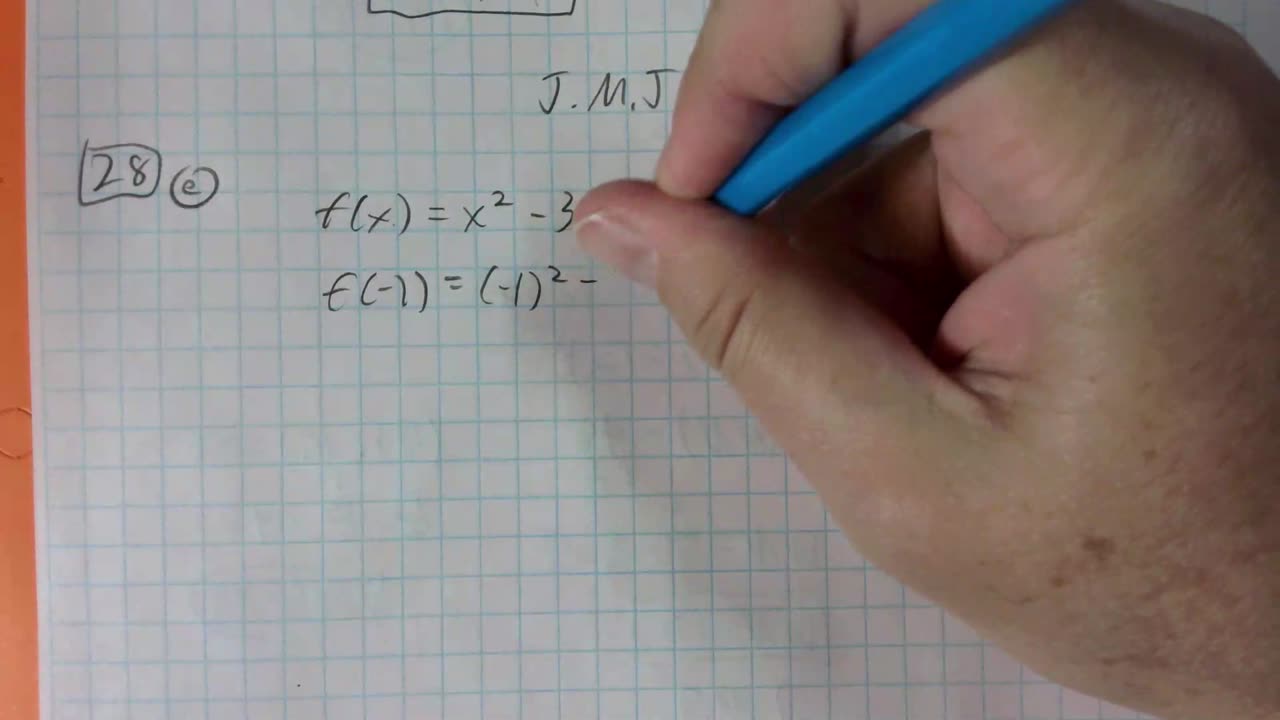 J.M.J
28 e
f(x) = x² - 3
f(-1) = (-1)² -